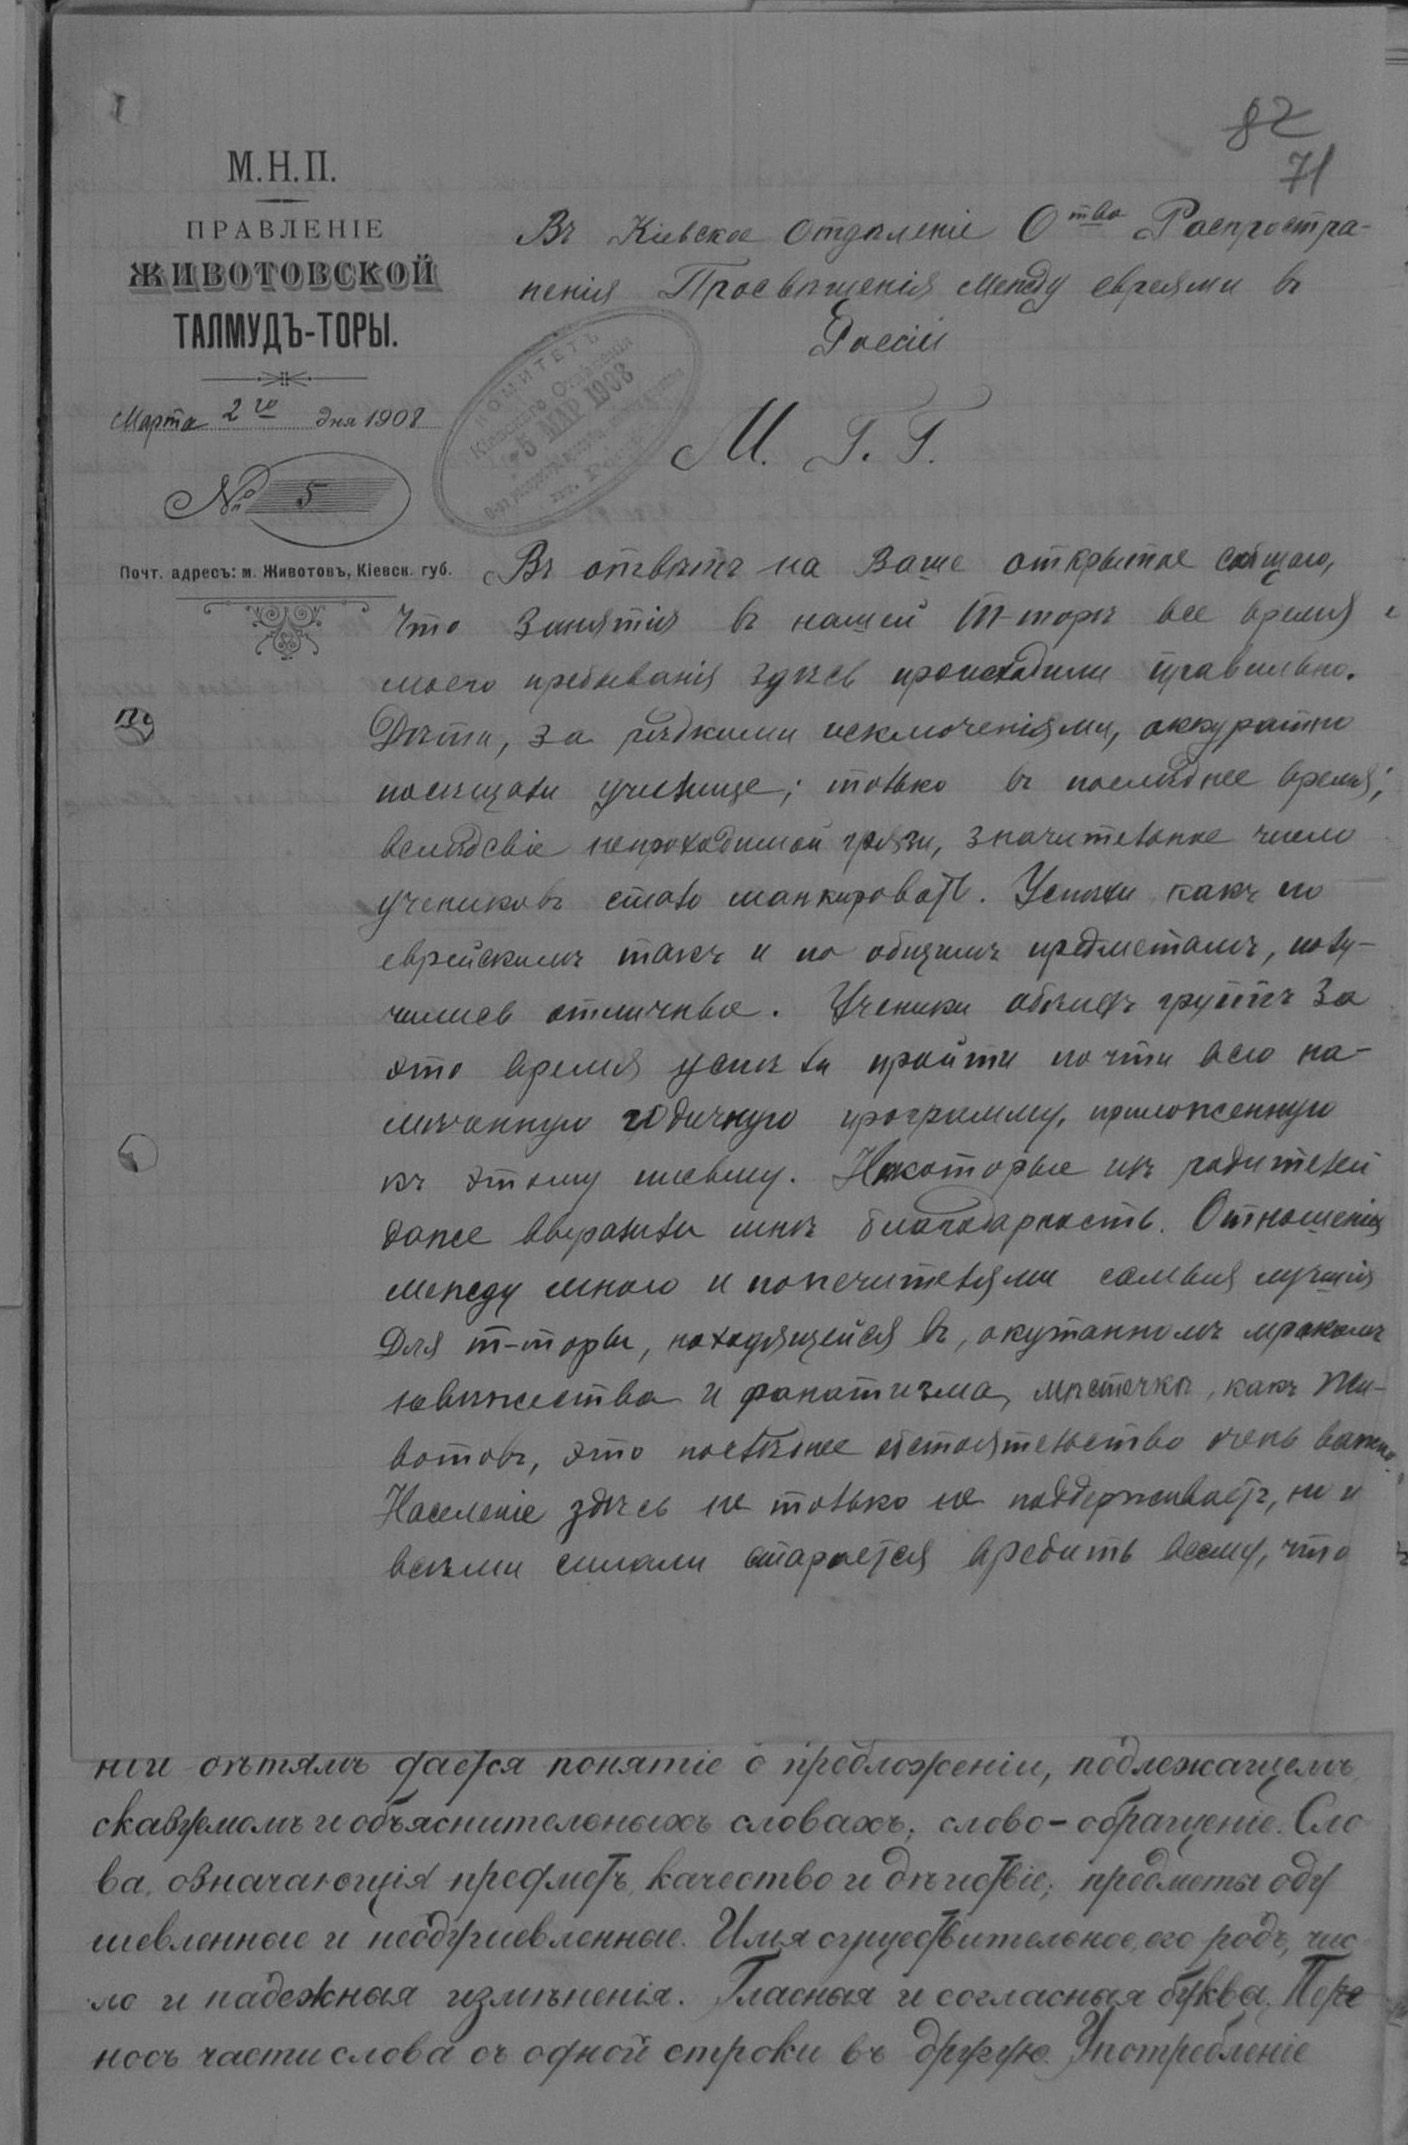 82
71
М.Н.П.
ПРАВЛЕНІЕ
ЖИВОТОВСКОЙ
ТАЛМУДЪ-ТОРЫ.
Марта 2го дня 1908
№ 5
Почт. адресъ: м. Животовъ, Кіевск. губ.
Въ Кіевское Отдѣленіе Отва Распростра-
ненія Просвѣщенія между евреями въ
Россіи
КОМИТЕТЪ
Кіевского Отдѣленія
5 МАР 1908
М. Г. Г.
Въ отвѣтъ на Ваше открытое сообщаю,
что занятія въ нашей Т-торѣ все время
моего пребыванія здѣсь происходили правильно.
Дѣти, за рѣдкими исключеніями, аккуратно
посѣщали училище; только въ послѣднее время,
вслѣдсвіе непроходимой грязи, значительное число
учениковъ стало манкировать. Успѣхи какъ по
еврейскимъ такъ и по общимъ предметамъ, полу-
чились отличные. Ученики обѣихъ группъ за
это время успѣли пройти почти всю на-
мѣченную годичную программу, приложенную
къ этому письму. Нѣкоторые изъ родителей
даже выразили мнѣ благодарность. Отношенія
между мною и попечителями самыя лучшія
Для т-торы, находящейся въ, окутанномъ мракомъ
невѣжества и фанатизма, мѣстечкѣ, какъ Жи-
вотовъ, это послѣднее обстоятельство очень важно.
Населеніе здѣсь не только не поддерживаетъ, но и
всѣми силами старается вредить всему, что
ніи дѣтямъ дается понятіе о предложеніи, подлежащемъ
сказуемомъ и объяснительныхъ словахъ, слово-обращеніе. Сло
ва, означающія предметъ, качество и дѣйствіе; предметы оду
шевленные и неодушевленные. Имя существительное, его родъ, чис
ло и падежныя измѣненія. Гласныя и согласныя буквы. Пере
носъ части слова съ одной строки въ другую. Употребленіе